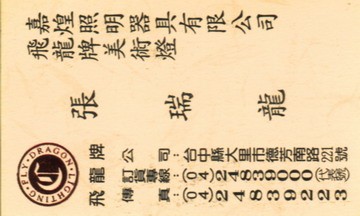 嘉煌照明器具有限公司
飛龍牌美術燈
張瑞龍
FLY · DRAGON
LIGHTING
飛龍牌
公司：台中縣大里市德芳南路221號
訂貨專線：(04)24839000(代表號)
傳真：(04)24839223